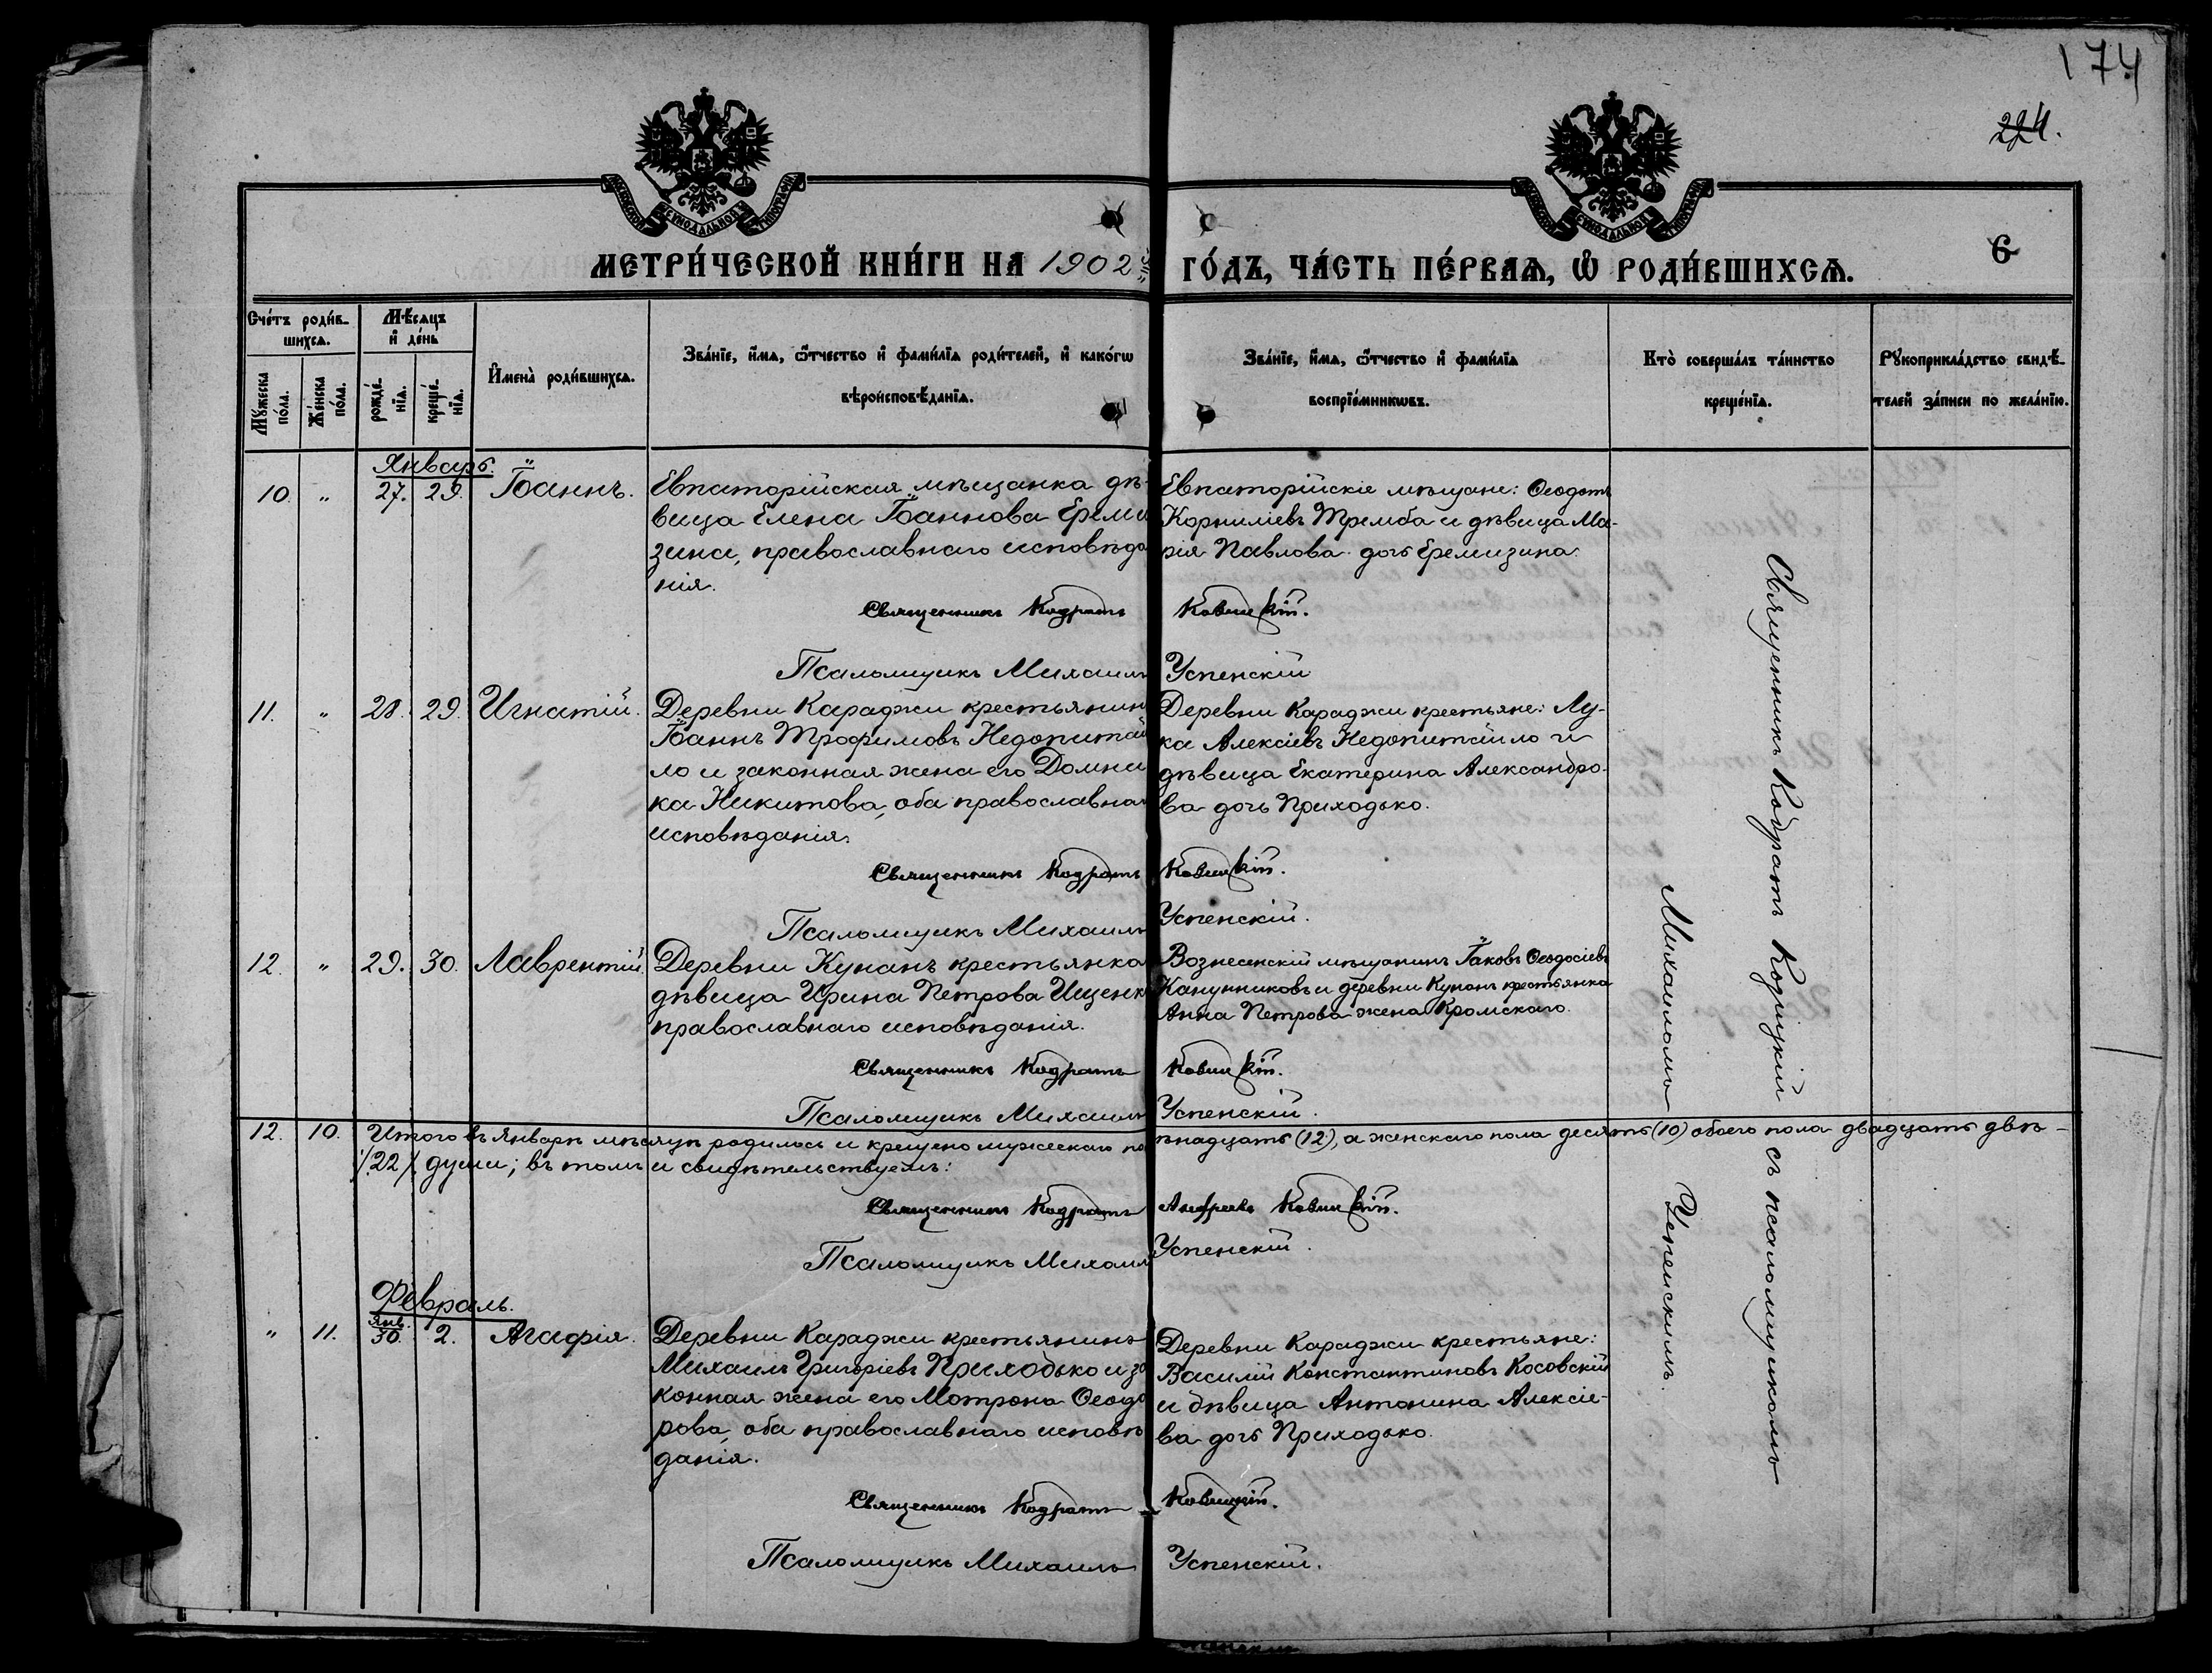 174
224.
6
МЕТРИ́ЧЕСКОЙ КНИ́ГИ НА 1902 ГО́ДЪ, ЧА́СТЬ ПЕ́РВАѦ, Ѽ РОДИ́ВШИХСѦ.
Сче́тъ роди́в-
шихсѧ.
Мѣ́сѧцъ
и҆ де́нь
Мꙋ́жеска
по́ла.
Же́нска
по́ла.
рожде́-
нїѧ.
креще́-
нїѧ.
И҆мена̀ роди́вшихсѧ.
Зва́нїе, и҆́мѧ, ѻ҆́тчество и҆ фами́лїѧ роди́телей, и҆ како́гѡ
вѣроисповѣ́данїѧ.
Зва́нїе, и҆́мѧ, ѻ҆́тчество и҆ фами́лїѧ
воспрїе́мникѡвъ.
Кто̀ соверша́лъ та́инство
креще́нїѧ.
Рꙋкоприкла́дство свидѣ́-
телей за́писи по жела́нїю.
Январь.
10. " 27. 29. Іоаннъ.
Евпаторійская мѣщанка дѣ-
вица Елена Іоаннова Ереми
зина, православнаго исповѣда
нія.
Евпаторійскіе мѣщане: Ѳеодотъ
Корниліевъ Тремба и дѣвица Ма-
рія Павлова дочь Еремизина.
Священникъ Кодратъ
Псаломщикъ Михаилъ Успенскій
11. " 28. 29. Игнатій.
Деревни Караджи крестьянин
Іоаннъ Трофимовъ Недопитай
ло и законная жена его Домни
ка Никитова, оба православна
исповѣданія.
Деревни Караджи крестьяне: Лу-
ка Алексіевъ Недопитайло и
дѣвица Екатерина Александро-
ва дочь Приходько.
Священникъ Кодратъ
Псаломщикъ Михаилъ Успенскій.
12. " 29. 30. Лаврентій.
Деревни Кунанъ крестьянка
дѣвица Ирина Петрова Ищенк
православнаго исповѣданія.
Вознесенскій мѣщанинъ Іаковъ Ѳеодосіевъ
Канунниковъ и деревни Кунанъ крестьянка
Анна Петрова жена Кромскаго.
Священникъ Кодратъ
Псаломщикъ Михаилъ Успенскій.
12. 10. Итого въ Январѣ мѣсяцѣ родилось и крещено мужескаго по ѣнадцать (12), а женскаго пола десять (10) обоего пола двадцать двѣ-
/22/ души; въ томъ и свидѣтельствуемъ:
Священникъ Кодратъ Андреевъ
Псаломщикъ Михаил Успенскій.
Февраль.
" 11. Янв. 30. 2. Агафія.
Деревни Караджи крестьянинъ
Михаилъ Григоріевъ Приходько и за
конная жена его Мотрона Ѳеодо
рова, оба православнаго исповѣ
данія.
Деревни Караджи крестьяне:
Василій Константиновъ Косовскій
и дѣвица Антонина Алексіе-
ва дочь Приходько.
Священникъ Кодратъ
Псаломщикъ Михаилъ Успенскій.
Священникъ Кодратъ съ псаломщикомъ
Михаиломъ Успенскимъ.